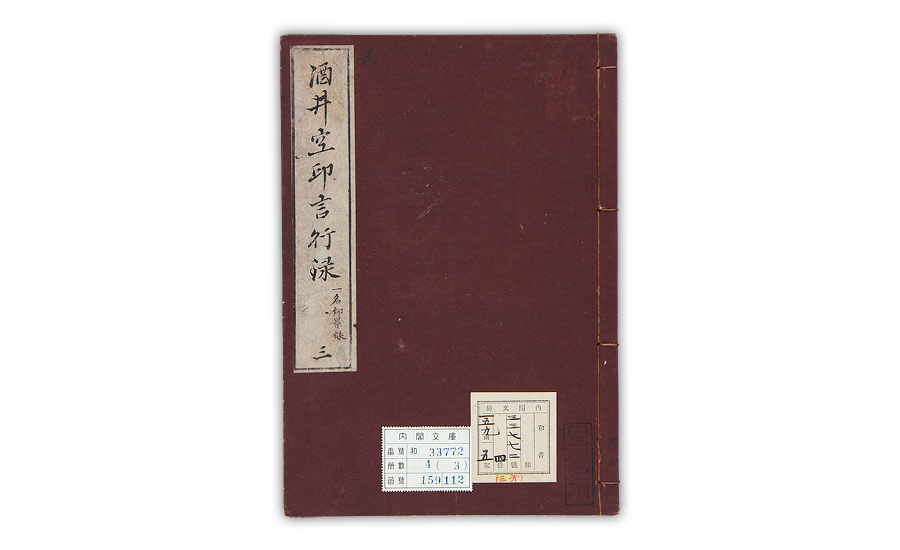 酒井空印言行録
一名仰景録
三
内閣文庫
番號 和 33772
冊數 4 ( 3 )
函號 159 112
内閣文庫
和書
三三七七二
號
一五九
函
五
四
架
冊